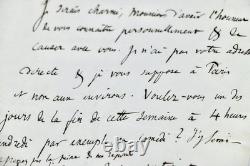 Je serais charmé, Monsieur d'avoir l'honneur
de vous connaître personnellement & de
causer avec vous. Je n'ai pas votre adresse
directe & je vous suppose à Paris
et non aux environs. Voulez-vous un des
jours de la fin de cette semaine à 4 heures
par exemple, ou samedi? J'y serai
pas la peine de me répondre